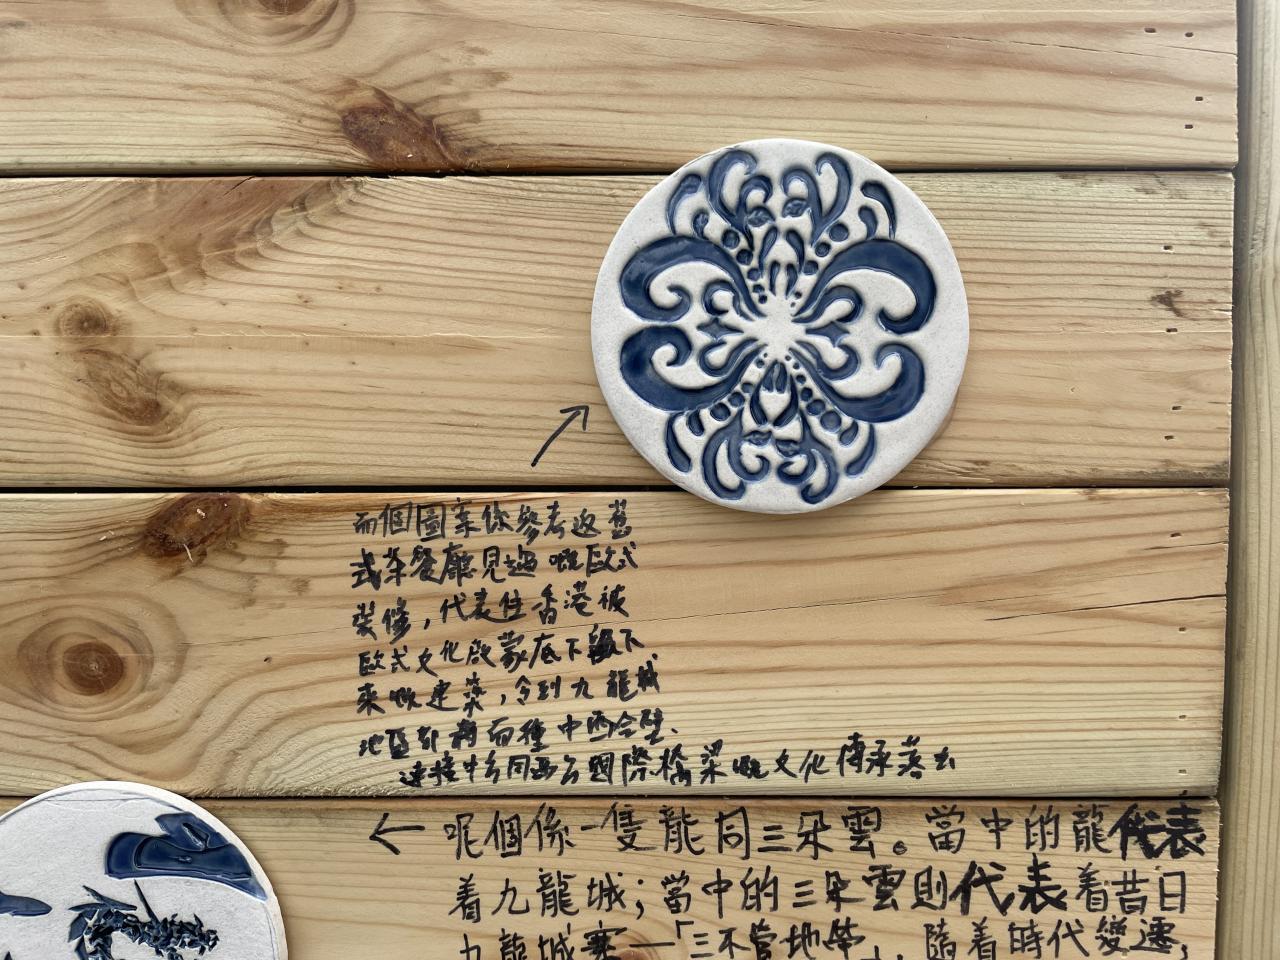 而個圖案係參考返舊
式茶餐廳見過嘅歐式
裝修，代表住香港被
歐式文化啟蒙底下留下
來嘅建築，令到九龍城
地區都有兩種中西合璧、
連接中方同西方國際橋梁嘅文化傳承落去
呢個係一隻龍同三朵雲。當中的龍代表
着九龍城；當中的三朵雲則代表着昔日
九龍城寨—「三不管地帶」，隨着時代變遷，